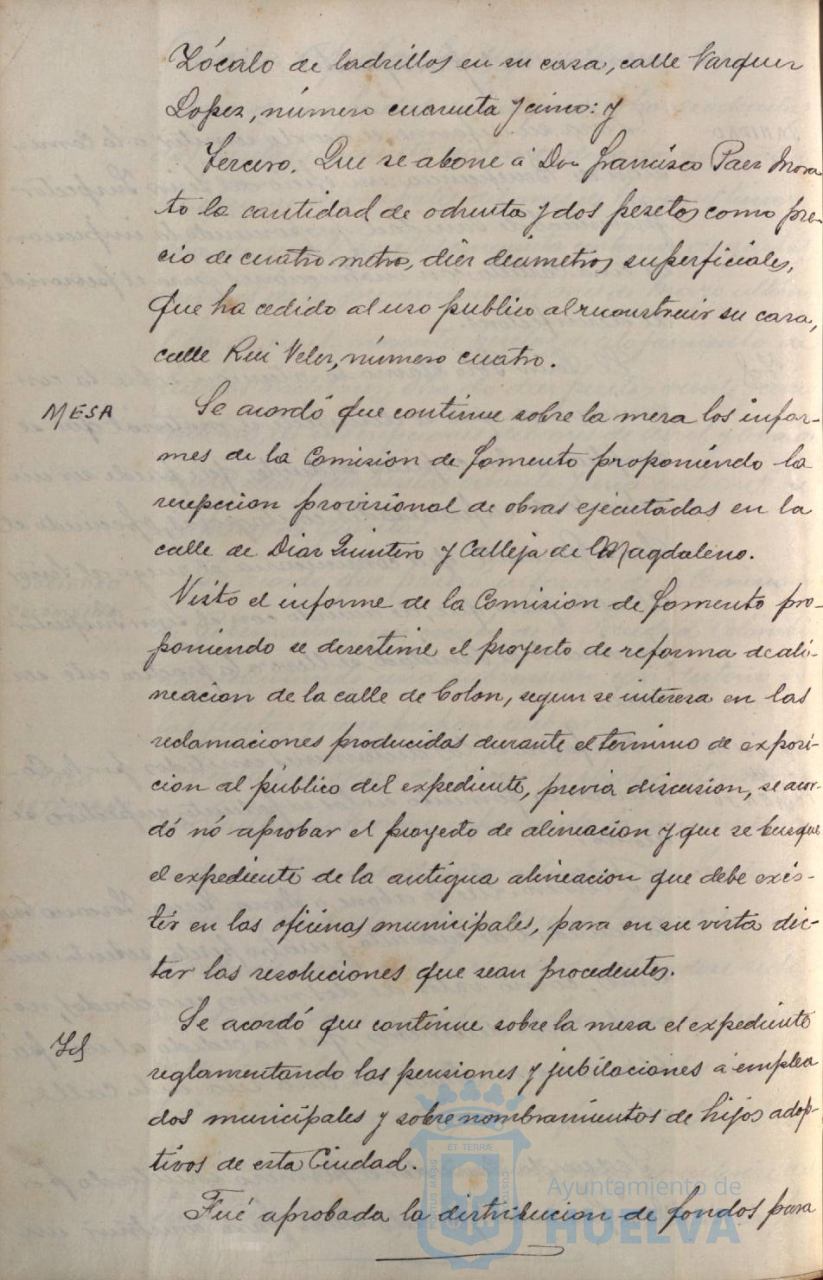 Zócalo de ladrillos en su casa, calle Vazquez
Lopez, número cuarenta y cinco: y
Tercero. Que se abone á Don Francisco Paez Mora
to la cantidad de ochenta y dos pesetas como pre-
cio de cuatro metros, diez decimetros superficiales,
que ha cedido al uso publico al reconstruir su casa,
calle Rui Velez, número cuatro.
MESA
Se acordó que continue sobre la mesa los infor-
mes de la Comision de Fomento proponiendo la
recepcion provisional de obras ejecutadas en la
calle de Diaz Quintero y Calleja de la Magdalena.
Visto el informe de la Comision de Fomento pro-
poniendo se desestime el proyecto de reforma de ali-
neacion de la calle de Colon, segun se interesa en las
reclamaciones producidas durante el termino de exposi-
cion al público del expediente, previa discusion, se acor-
dó nó aprobar el proyecto de alineacion y que se busque
el expediente de la antigua alineacion que debe exis-
tir en las oficinas municipales, para en su vista dic-
tar las resoluciones que sean procedentes.
Id
Se acordó que continue sobre la mesa el expediente
reglamentando las pensiones y jubilaciones á emplea
dos municipales y sobre nombramientos de hijos adop-
tivos de esta Ciudad.
Fué aprobada la distribucion de fondos para
ET TERRAE
Ayuntamiento de
HUELVA